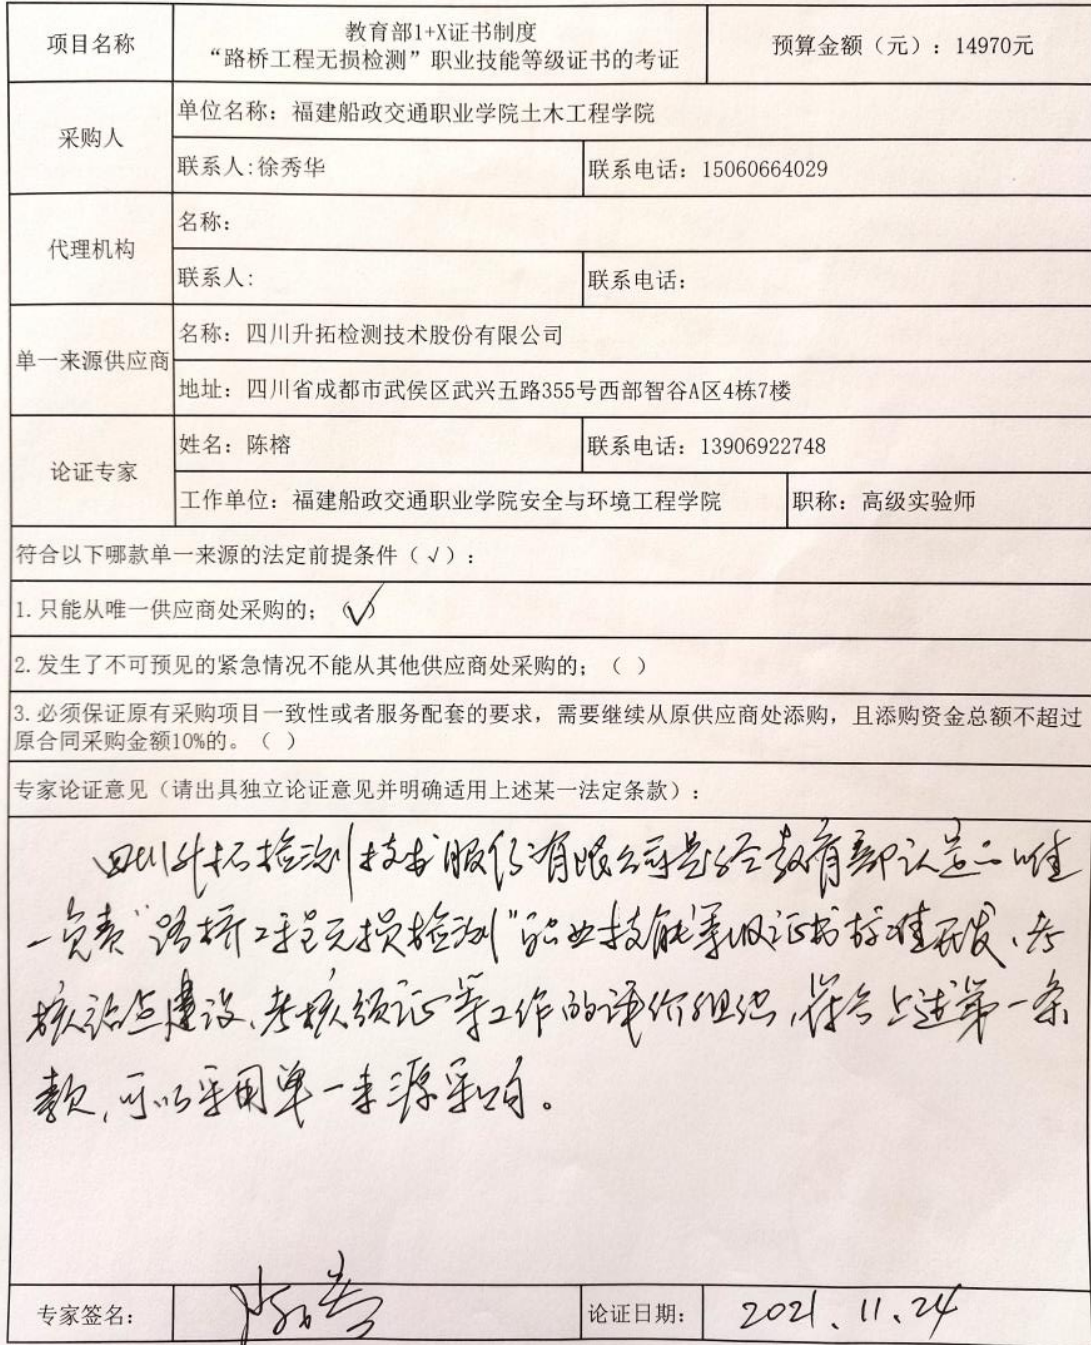 项目名称
教育部1+X证书制度
“路桥工程无损检测”职业技能等级证书的考证
预算金额（元）：14970元
采购人
单位名称：福建船政交通职业学院土木工程学院
联系人:徐秀华
联系电话：15060664029
代理机构
名称：
联系人:
联系电话：
单一来源供应商
名称：四川升拓检测技术股份有限公司
地址：四川省成都市武侯区武兴五路355号西部智谷A区4栋7楼
论证专家
姓名：陈榕
联系电话：13906922748
工作单位：福建船政交通职业学院安全与环境工程学院
职称：高级实验师
符合以下哪款单一来源的法定前提条件（√）：
1.只能从唯一供应商处采购的；（√）
2.发生了不可预见的紧急情况不能从其他供应商处采购的；（ ）
3.必须保证原有采购项目一致性或者服务配套的要求，需要继续从原供应商处添购，且添购资金总额不超过
原合同采购金额10%的。（ ）
专家论证意见（请出具独立论证意见并明确适用上述某一法定条款）：
四川升拓检测技术股份有限公司是经教育部认定的唯
一负责“路桥工程无损检测”职业技能等级证书标准开发、考
核站点建设、考核颁证等工作的评价组织，符合上述第一条
款，可以采用单一来源采购。
专家签名：
论证日期：
2021.11.24